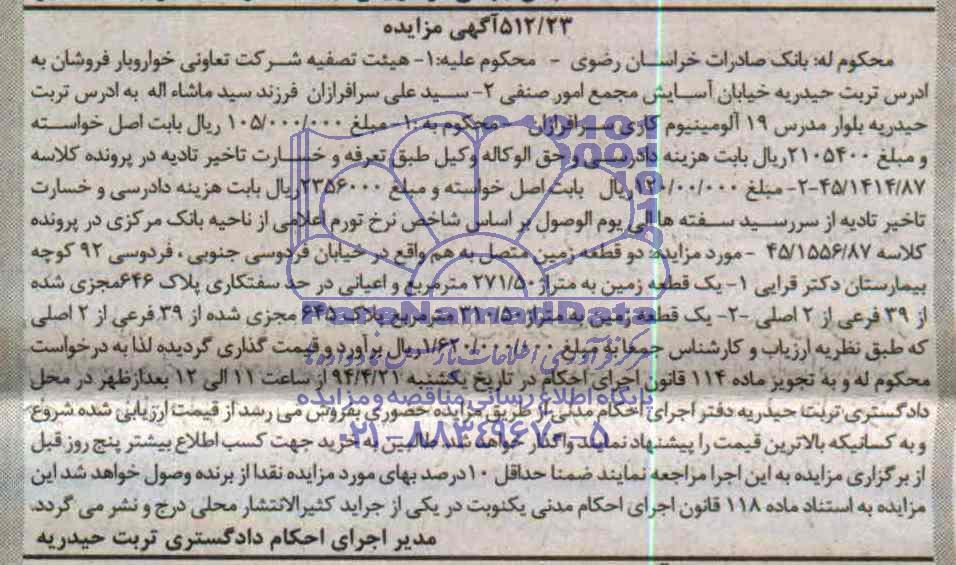 ۵۱۲/۲۳آگهی مزایده
محکوم له: بانک صادرات خراسان رضوی - محکوم علیه:۱- هیئت تصفیه شرکت تعاونی خواروبار فروشان به
ادرس تربت حیدریه خیابان آسایش مجمع امور صنفی ۲- سید علی سرافرازان فرزند سید ماشاء اله به ادرس تربت
حیدریه بلوار مدرس ۱۹ آلومینیوم کاری سرافرازان - محکوم به :۱- مبلغ ۱۰۵/۰۰۰/۰۰۰ ریال بابت اصل خواسته
و مبلغ ۲۱۰۵۴۰۰ریال بابت هزینه دادرسی و حق الوکاله وکیل طبق تعرفه و خسارت تاخیر تادیه در پرونده کلاسه
۴۵/۱۴۱۴/۸۷-۲- مبلغ ۱۲۰/۰۰/۰۰۰ریال بابت اصل خواسته و مبلغ ۲۳۵۶۰۰۰ریال بابت هزینه دادرسی و خسارت
تاخیر تادیه از سررسید سفته ها الی یوم الوصول بر اساس شاخص نرخ تورم اعلامی از ناحیه بانک مرکزی در پرونده
کلاسه ۴۵/۱۵۵۶/۸۷ -مورد مزایده: دو قطعه زمین متصل به هم واقع در خیابان فردوسی جنوبی ، فردوسی ۹۲ کوچه
بیمارستان دکتر قرایی ۱- یک قطعه زمین به متراژ ۲۷۱/۵۰ مترمربع و اعیانی در حد سفتکاری پلاک ۶۴۶مجزی شده
از ۳۹ فرعی از ۲ اصلی -۲- یک قطعه زمین به متراژ ۳۱۰/۵۰ مترمربع پلاک ۶۴۵ مجزی شده از ۳۹ فرعی از ۲ اصلی
که طبق نظریه ارزیاب و کارشناس جمعا به مبلغ ۱/۶۲۰/۰۰۰/۰۰۰ریال برآورد و قیمت گذاری گردیده لذا به درخواست
محکوم له و به تجویز ماده ۱۱۴ قانون اجرای احکام در تاریخ یکشنبه ۹۴/۴/۲۱ از ساعت ۱۱ الی ۱۲ بعدازظهر در محل
دادگستری تربت حیدریه دفتر اجرای احکام مدنی از طریق مزایده حضوری بفروش می رسد از قیمت ارزیابی شده شروع
و به کسانیکه بالاترین قیمت را پیشنهاد نمایند واگذار خواهد شد طالبین به خرید جهت کسب اطلاع بیشتر پنج روز قبل
از برگزاری مزایده به این اجرا مراجعه نمایند ضمنا حداقل ۱۰درصد بهای مورد مزایده نقدا از برنده وصول خواهد شد این
مزایده به استناد ماده ۱۱۸ قانون اجرای احکام مدنی یکنوبت در یکی از جراید کثیرالانتشار محلی درج و نشر می گردد.
مدیر اجرای احکام دادگستری تربت حیدریه
ParsNamadData
پایگاه اطلاع رسانی مناقصه و مزایده
۰۲۱-۸۸۳۴۹۶۷۰-۵